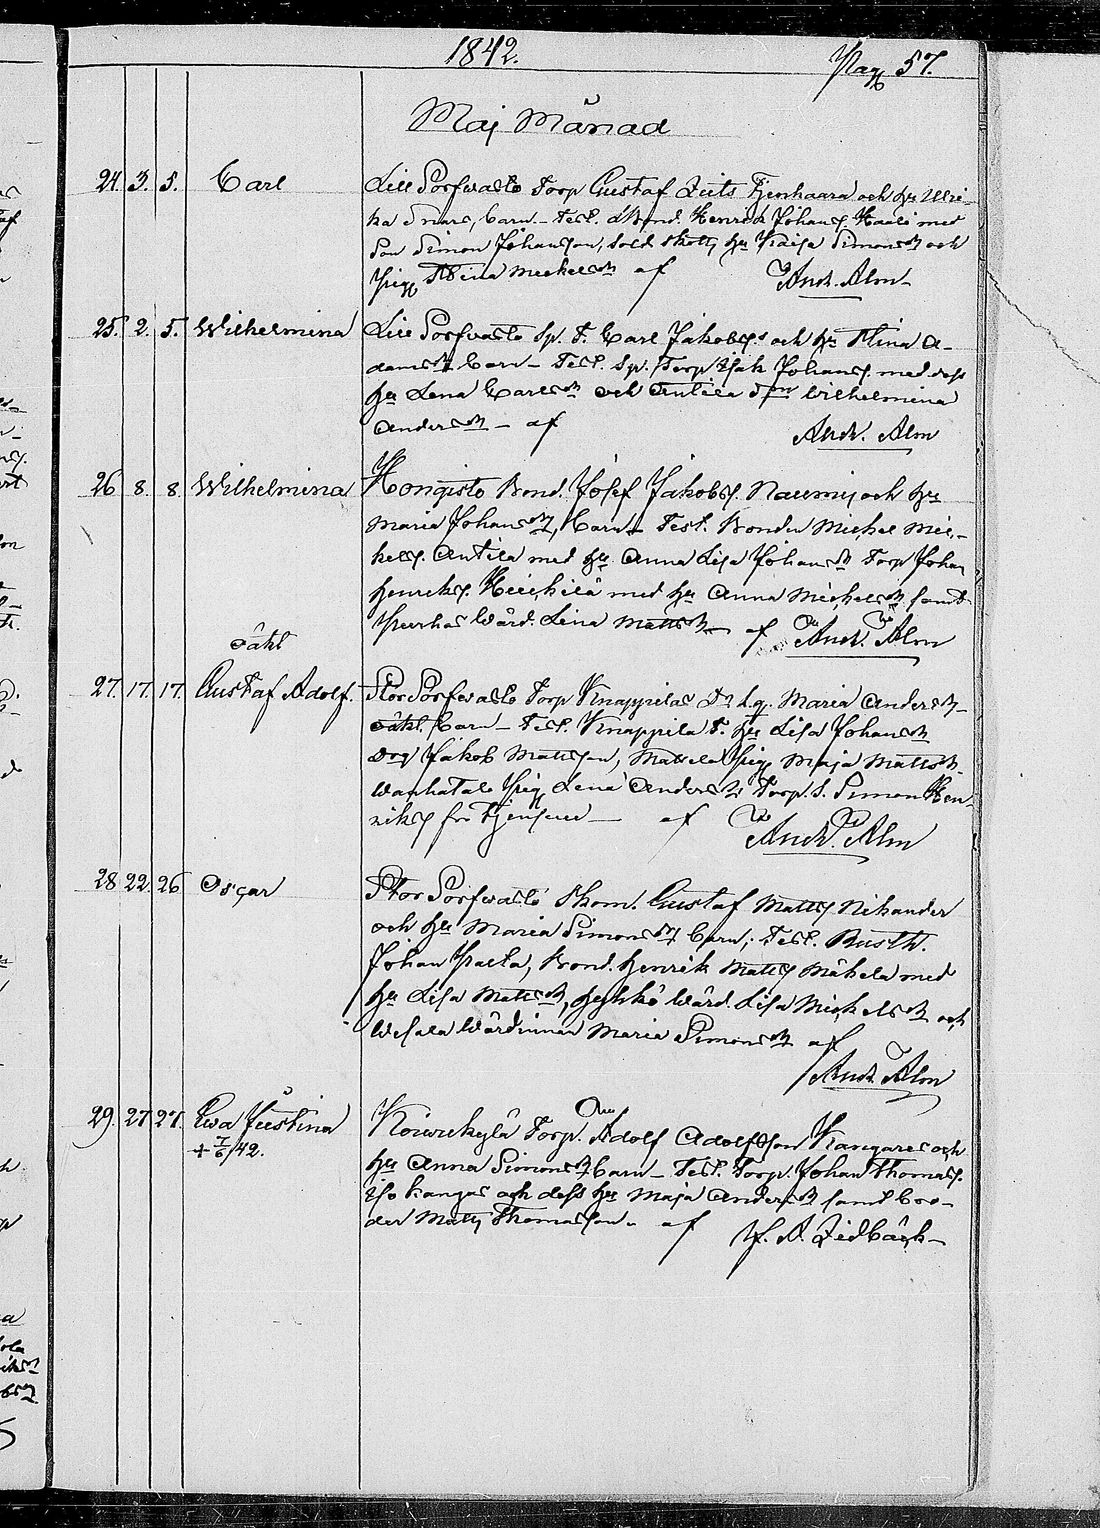 1842.
Pag 57.
Maj Månad
24. 3. 5. Carl
Lill Sorfvasto Torp Gustaf Zuits Tjenhaara och hu Ulri-
ka Snars, barn - Test. Bond. Henrik Johans Kaali med
Son Simon Johansson, sold. hu Kaisa Simonsdr och
Pig Stina Meckelsdr af And. Alm
25. 2. 5. Wilhelmina
Lill Sorfvasto Sp. T. Carl Jakobss och hu Stina A-
damsdr barn - Test. Sp. Torp Isak Johans. med dess
hu Lena Carlsdr och Antila Wilhelmina
Andersdr - af And. Alm
26 8. 8. Wilhelmina
Hongisto Bond. Josef Jakobs. Naumi och hu
Maria Johansdr, barn - Test. Bonden Michel Mic-
kels. Antila med hu Anna Lisa Johansdr Torp Johan
Henriks. Heickilä med hu Anna Michelsdr samt
Wärd. Lina Mattsdr - af And. Alm
oäkt
27. 17. 17. Gustaf Adolf.
Stor Sorfvasto Torp Knappilas Maria Andersdr
oäkt. barn - Test. Knappila T. hu Lisa Johansdr
drg Jakob Mattsson, Mattila Pig Maja Mattsdr.
Wanhatalo Pig Lena Andersdr Torp. S. Simon Hen-
riks fr - af And. Alm
28 22. 26 Oscar
Stor Sorfvasto Skom. Gustaf Matts Nikander
och hu Maria Simonsdr barn; Test. Rusth.
Johan Paeta, Bond. Henrik Matts Mäkela med
hu Lisa Mattsdr, Wärd. Lisa Mickelsdr och
Wesala Wärdinnan Maria Simonsdr af
And. Alm
29. 27 27. Eva Justina
+ 7/6 /42.
Koivukylä Torp. Adolf Adolfsson Kangares och
hu Anna Simonsdr barn - Test. Torp. Johan Thomass.
Iso kangas och dess hu Maja Andersdr samt bro-
der Matts Thomasson. af J. A. Zidbäck